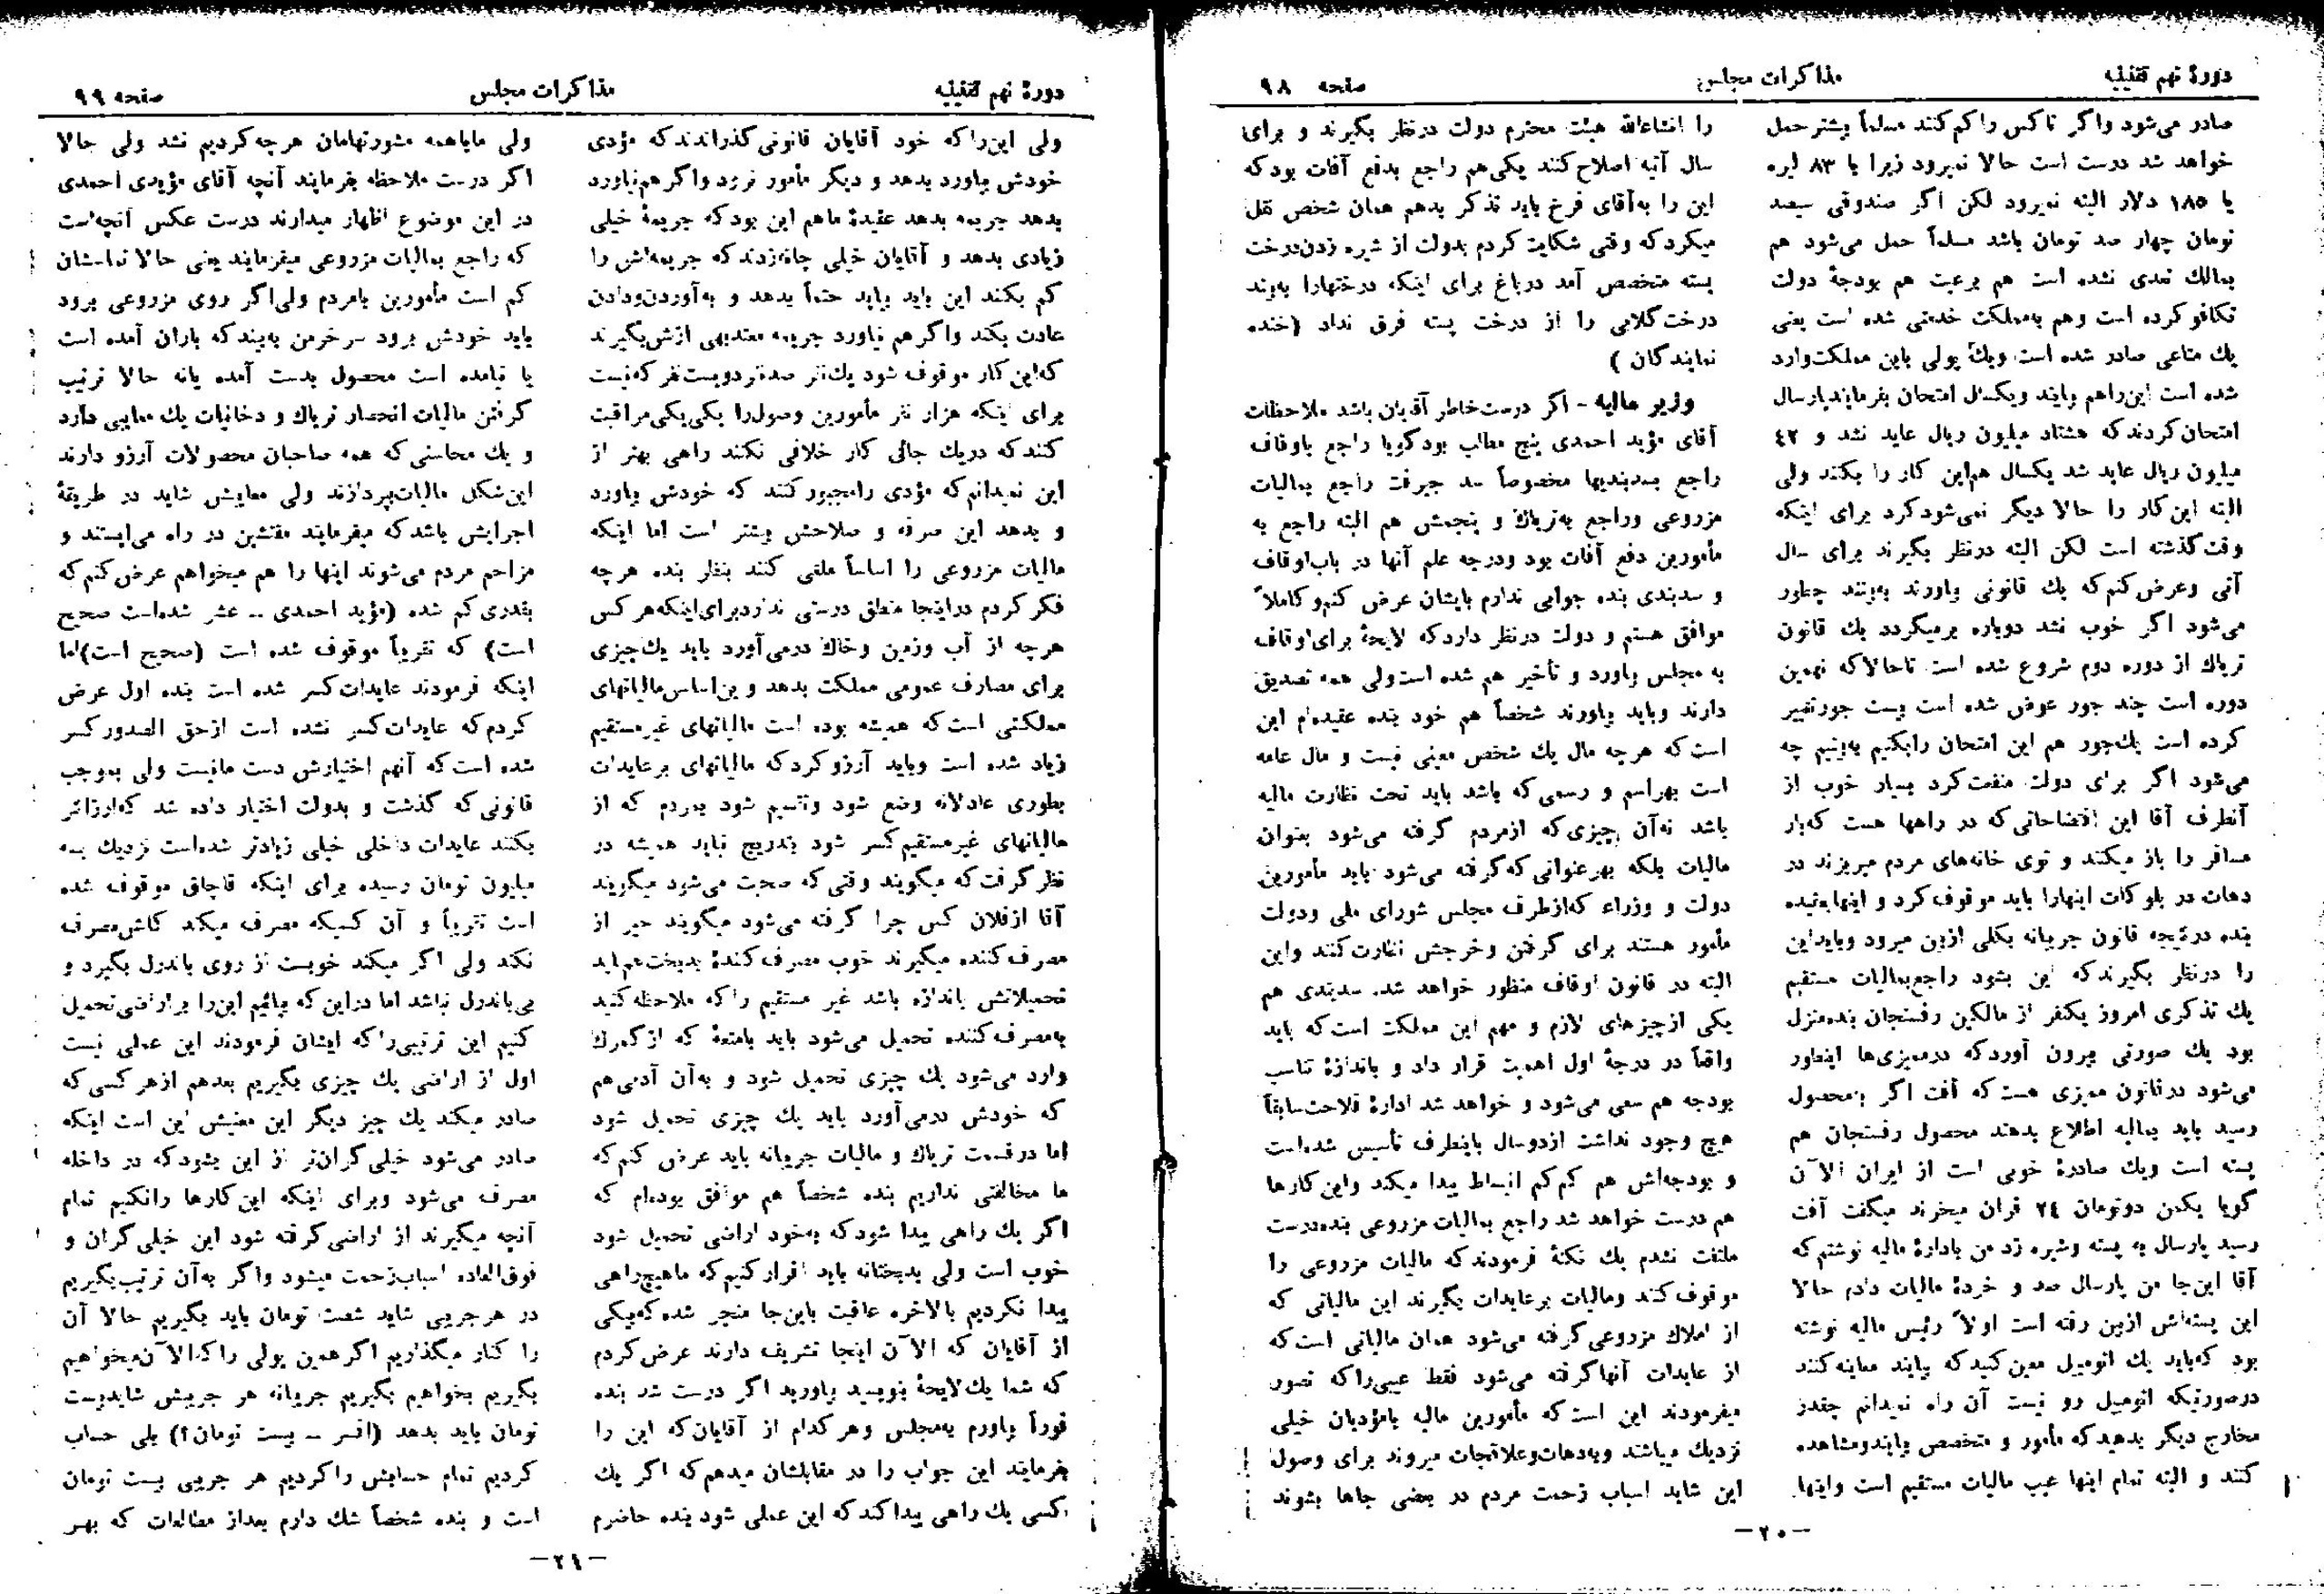 دورهٔ نهم تقنینیه
مذاکرات مجلس
صفحه ۹۸
صادر می‌شود واگر تاکس را کم کنند مسلماً بیشتر حمل
خواهد شد درست است حالا نمیرود زیرا با ۸۳ لیره
یا ۱۸۵ دلار البته نمیرود لکن اگر صندوقی سیصد
تومان چهار صد تومان باشد مسلماً حمل می‌شود هم
بمالك تعدی نشده است هم برعیت هم بودجهٔ دولت
تکافو کرده است وهم بمملکت خدمتی شده است یعنی
یك متاعی صادر شده است ویك پولی باین مملکت وارد
شده است این‌راهم بیایند ویکسال امتحان بفرمایند پارسال
امتحان کردند که هشتاد میلیون ریال عاید نشد و ٤٢
میلیون ریال عاید شد یکسال هم‌این کار را بکنند ولی
البته این کار را حالا دیگر نمی‌شود کرد برای اینکه
وقت گذشته است لکن البته درنظر بگیرند برای سال
آتی وعرض کنم که یك قانونی بیاورند به‌بینند چطور
می‌شود اگر خوب نشد دوباره برمیگردد یك قانون
تریاك از دوره دوم شروع شده است تاحالا که نهمین
دوره است چند جور عوض شده است بیست جور تغییر
کرده است یك‌جور هم این امتحان را بکنیم به‌بینیم چه
می‌شود اگر برای دولت منفعت کرد بسیار خوب از
آنطرف آقا این افتضاحاتی که در راهها هست که‌بار
مسافر را باز میکنند و توی خانه‌های مردم میریزند در
دهات در بلوکات اینهارا باید موقوف کرد و اینها بعقیده
بنده درنتیجه قانون جریانه بکلی ازبین میرود وبایداین
را درنظر بگیرند که این بشود راجع‌بمالیات مستقیم
یك تذکری امروز یکنفر از مالکین رفسنجان بنده‌منزل
بود یك صورتی بیرون آورد که درممیزی‌ها اینطور
می‌شود درقانون ممیزی هست که آفت اگر بمحصول
رسید باید بمالیه اطلاع بدهند محصول رفسنجان هم
پسته است ویك صادرهٔ خوبی است از ایران الاآن
گویا یکمن دوتومان ٢٤ قران میخرند میگفت آفت
رسید پارسال به پسته وشیره زد من بادارهٔ مالیه نوشتم که
آقا این‌جا من پارسال صد و خردهٔ مالیات دادم حالا
این پسته‌اش ازبین رفته است اولاً رئیس مالیه نوشته
بود که‌باید یك اتومبیل معین کنید که بیایند معاینه کنند
درصورتیکه اتومبیل رو نیست آن راه نمیدانم چقدر
مخارج دیگر بدهید که مأمور و متخصص بیایند ومشاهده
کنند و البته تمام اینها عیب مالیات مستقیم است واینها
را انشاءالله هیئت محترم دولت درنظر بگیرند و برای
سال آتیه اصلاح کنند یکی‌هم راجع بدفع آفات بود که
این را به‌آقای فرخ باید تذکر بدهم همان شخص نقل
میکرد که وقتی شکایت کردم بدولت از شیره زدن‌درخت
پسته متخصص آمد درباغ برای اینکه درختهارا به‌بیند
درخت گلابی را از درخت پسته فرق نداد (خنده
نمایندگان )
وزیر مالیه - اگر درست خاطر آقایان باشد ملاحظات
آقای مؤید احمدی پنج مطلب بود گویا راجع باوقاف
راجع بسدبندیها مخصوصاً سد جیرفت راجع بمالیات
مزروعی وراجع به‌تریاك و پنجمش هم البته راجع به
مأمورین دفع آفات بود ودرجه علم آنها در باب اوقاف
و سدبندی بنده جوابی ندارم بایشان عرض کنم و کاملاً
موافق هستم و دولت درنظر دارد که لایحهٔ برای اوقاف
به مجلس بیاورد و تأخیر هم شده است ولی همه تصدیق
دارند وباید بیاورند شخصاً هم خود بنده عقیده‌ام این
است که هرچه مال یك شخص معینی نیست و مال عامه
است بهراسم و رسمی که باشد باید تحت نظارت مالیه
باشد نه‌آن چیزی که ازمردم گرفته می‌شود بعنوان
مالیات بلکه بهرعنوانی که گرفته می‌شود باید مأمورین
دولت و وزراء که‌ازطرف مجلس شورای ملی ودولت
مأمور هستند برای گرفتن وخرجش نظارت کنند واین
البته در قانون اوقاف منظور خواهد شد. سدبندی هم
یکی ازچیزهای لازم و مهم این مملکت است که باید
واقعاً در درجهٔ اول اهمیت قرار داد و باندازهٔ تناسب
بودجه هم سعی می‌شود و خواهد شد ادارهٔ فلاحت سابقاً
هیچ وجود نداشت ازدوسال باینطرف تأسیس شده‌است
و بودجه‌اش هم کم‌کم انبساط پیدا میکند واین کارها
هم درست خواهد شد راجع بمالیات مزروعی بنده‌درست
ملتفت نشدم یك نکتهٔ فرمودند که مالیات مزروعی را
موقوف کنند ومالیات برعایدات بگیرند این مالیاتی که
از املاك مزروعی گرفته می‌شود همان مالیاتی است که
از عایدات آنها گرفته می‌شود فقط عیبی‌را که تصور
میفرمودند این است که مأمورین مالیه بامؤدیان خیلی
نزدیك میباشند وبه‌دهات‌وعلاقجات میروند برای وصول
این شاید اسباب زحمت مردم در بعضی جاها بشوند
-٢٠-
دورهٔ نهم تقنینیه
مذاکرات مجلس
صفحه ۹۹
ولی این‌را که خود آقایان قانونی گذراندند که مؤدی
خودش بیاورد بدهد و دیگر مأمور نرود واگر هم‌نیاورد
بدهد جریمه بدهد عقیدهٔ ماهم این بود که جریمهٔ خیلی
زیادی بدهد و آقایان خیلی چانه‌زدند که جریمه‌اش را
کم بکند این باید بیاید حتماً بدهد و به‌آوردن‌ودادن
عادت بکند واگر هم نیاورد جریمه معتدبهی ازش بگیرند
که‌این کار موقوف شود یك‌نفر صدنفر دویست‌نفر که نیست
برای اینکه هزار نفر مأمورین وصول‌را یکی‌یکی مراقبت
کنند که دریك جائی کار خلافی نکنند راهی بهتر از
این نمیدانم که مؤدی رامجبور کنند که خودش بیاورد
و بدهد این صرفه و صلاحش بیشتر است اما اینکه
مالیات مزروعی را اساساً ملغی کنند بنظر بنده هرچه
فکر کردم دراینجا منطق درستی ندارد برای‌اینکه هرکس
هرچه از آب وزمین وخاك درمی‌آورد باید یك‌چیزی
برای مصارف عمومی مملکت بدهد و این‌اساس مالیاتهای
مملکتی است که همیشه بوده است مالیاتهای غیرمستقیم
زیاد شده است وباید آرزو کرد که مالیاتهای برعایدات
بطوری عادلانه وضع شود وتقسیم شود بمردم که از
مالیاتهای غیرمستقیم کسر شود بتدریج نباید همیشه در
نظر گرفت که میگویند وقتی که صحبت می‌شود میگویند
آقا ازفلان کس چرا گرفته می‌شود میگویند خیر از
مصرف کننده میگیرند خوب مصرف کنندهٔ بدبخت‌هم‌باید
تحمیلاتش باندازه باشد غیر مستقیم را که ملاحظه کنید
به‌مصرف کننده تحمیل می‌شود باید بامتعهٔ که از گمرك
وارد می‌شود یك چیزی تحمیل شود و به‌آن آدمی‌هم
که خودش درمی‌آورد باید یك چیزی تحمیل شود
اما درقسمت تریاك و مالیات جریانه باید عرض کنم که
ما مخالفتی نداریم بنده شخصاً هم موافق بوده‌ام که
اگر یك راهی پیدا شود که به‌خود اراضی تحمیل شود
خوب است ولی بدبختانه باید اقرار کنیم که ماهیچ‌راهی
پیدا نکردیم بالاخره عاقبت باین‌جا منجر شده که‌یکی
از آقایان که الاآن اینجا تشریف دارند عرض کردم
که شما یك لایحهٔ بنویسید بیاورید اگر درست شد بنده
فوراً بیاورم به‌مجلس وهرکدام از آقایان که این را
بفرمایند این جواب را در مقابلشان میدهم که اگر یك
کسی یك راهی پیدا کند که این عملی شود بنده حاضرم
ولی ماباهمه مشورتهامان هرچه کردیم نشد ولی حالا
اگر درست ملاحظه بفرمایند آنچه آقای مؤیدی احمدی
در این موضوع اظهار میدارند درست عکس آنچه‌است
که راجع بمالیات مزروعی میفرمایند یعنی حالا تماسشان
کم است مأمورین بامردم ولی اگر روی مزروعی برود
باید خودش برود سرخرمن به‌بیند که باران آمده است
یا نیامده است محصول بدست آمده یانه حالا ترتیب
گرفتن مالیات انحصار تریاك و دخانیات یك معایبی دارد
و یك محاسنی که همه صاحبان محصولات آرزو دارند
این‌شکل مالیات بپردازند ولی معایبش شاید در طریقهٔ
اجرایش باشد که میفرمایند مفتشین در راه می‌ایستند و
مزاحم مردم می‌شوند اینها را هم میخواهم عرض کنم که
بقدری کم شده (مؤید احمدی ـ عشر شده‌است صحیح
است) که تقریباً موقوف شده است (صحیح است) اما
اینکه فرمودند عایدات کسر شده است بنده اول عرض
کردم که عایدات کسر نشده است ازحق الصدور کسر
شده است که آنهم اختیارش دست مانیست ولی بموجب
قانونی که گذشت و بدولت اختیار داده شد که‌ارزانتر
بکنند عایدات داخلی خیلی زیادتر شده‌است نزدیك بسه
میلیون تومان رسیده برای اینکه قاچاق موقوف شده
است تقریباً و آن کسیکه مصرف میکند کاش مصرف
نکند ولی اگر میکند خوبست از روی باندرل بگیرد و
بی‌باندرل نباشد اما دراین که بیائیم این‌را براراضی تحمیل
کنیم این ترتیبی‌را که ایشان فرمودند این عملی نیست
اول از اراضی یك چیزی بگیریم بعدهم ازهرکسی که
صادر میکند یك چیز دیگر این معنیش این است اینکه
صادر می‌شود خیلی گران‌تر از این بشود که در داخله
مصرف می‌شود وبرای اینکه این کارها رانکنیم تمام
آنچه میگیرند از اراضی گرفته شود این خیلی گران و
فوق‌العاده اسباب زحمت میشود واگر به‌آن ترتیب بگیریم
در هرجریبی شاید شصت تومان باید بگیریم حالا آن
را کنار میگذاریم اگر همین پولی راکه الاآن میخواهیم
بگیریم بخواهیم بگیریم جریانه هر جریبش شاید بیست
تومان باید بدهد (افسر ـ بیست تومان؟) بلی حساب
کردیم تمام حسابش را کردیم هر جریبی بیست تومان
است و بنده شخصاً شك دارم بعداز مطالعات که بهر
-٢١-